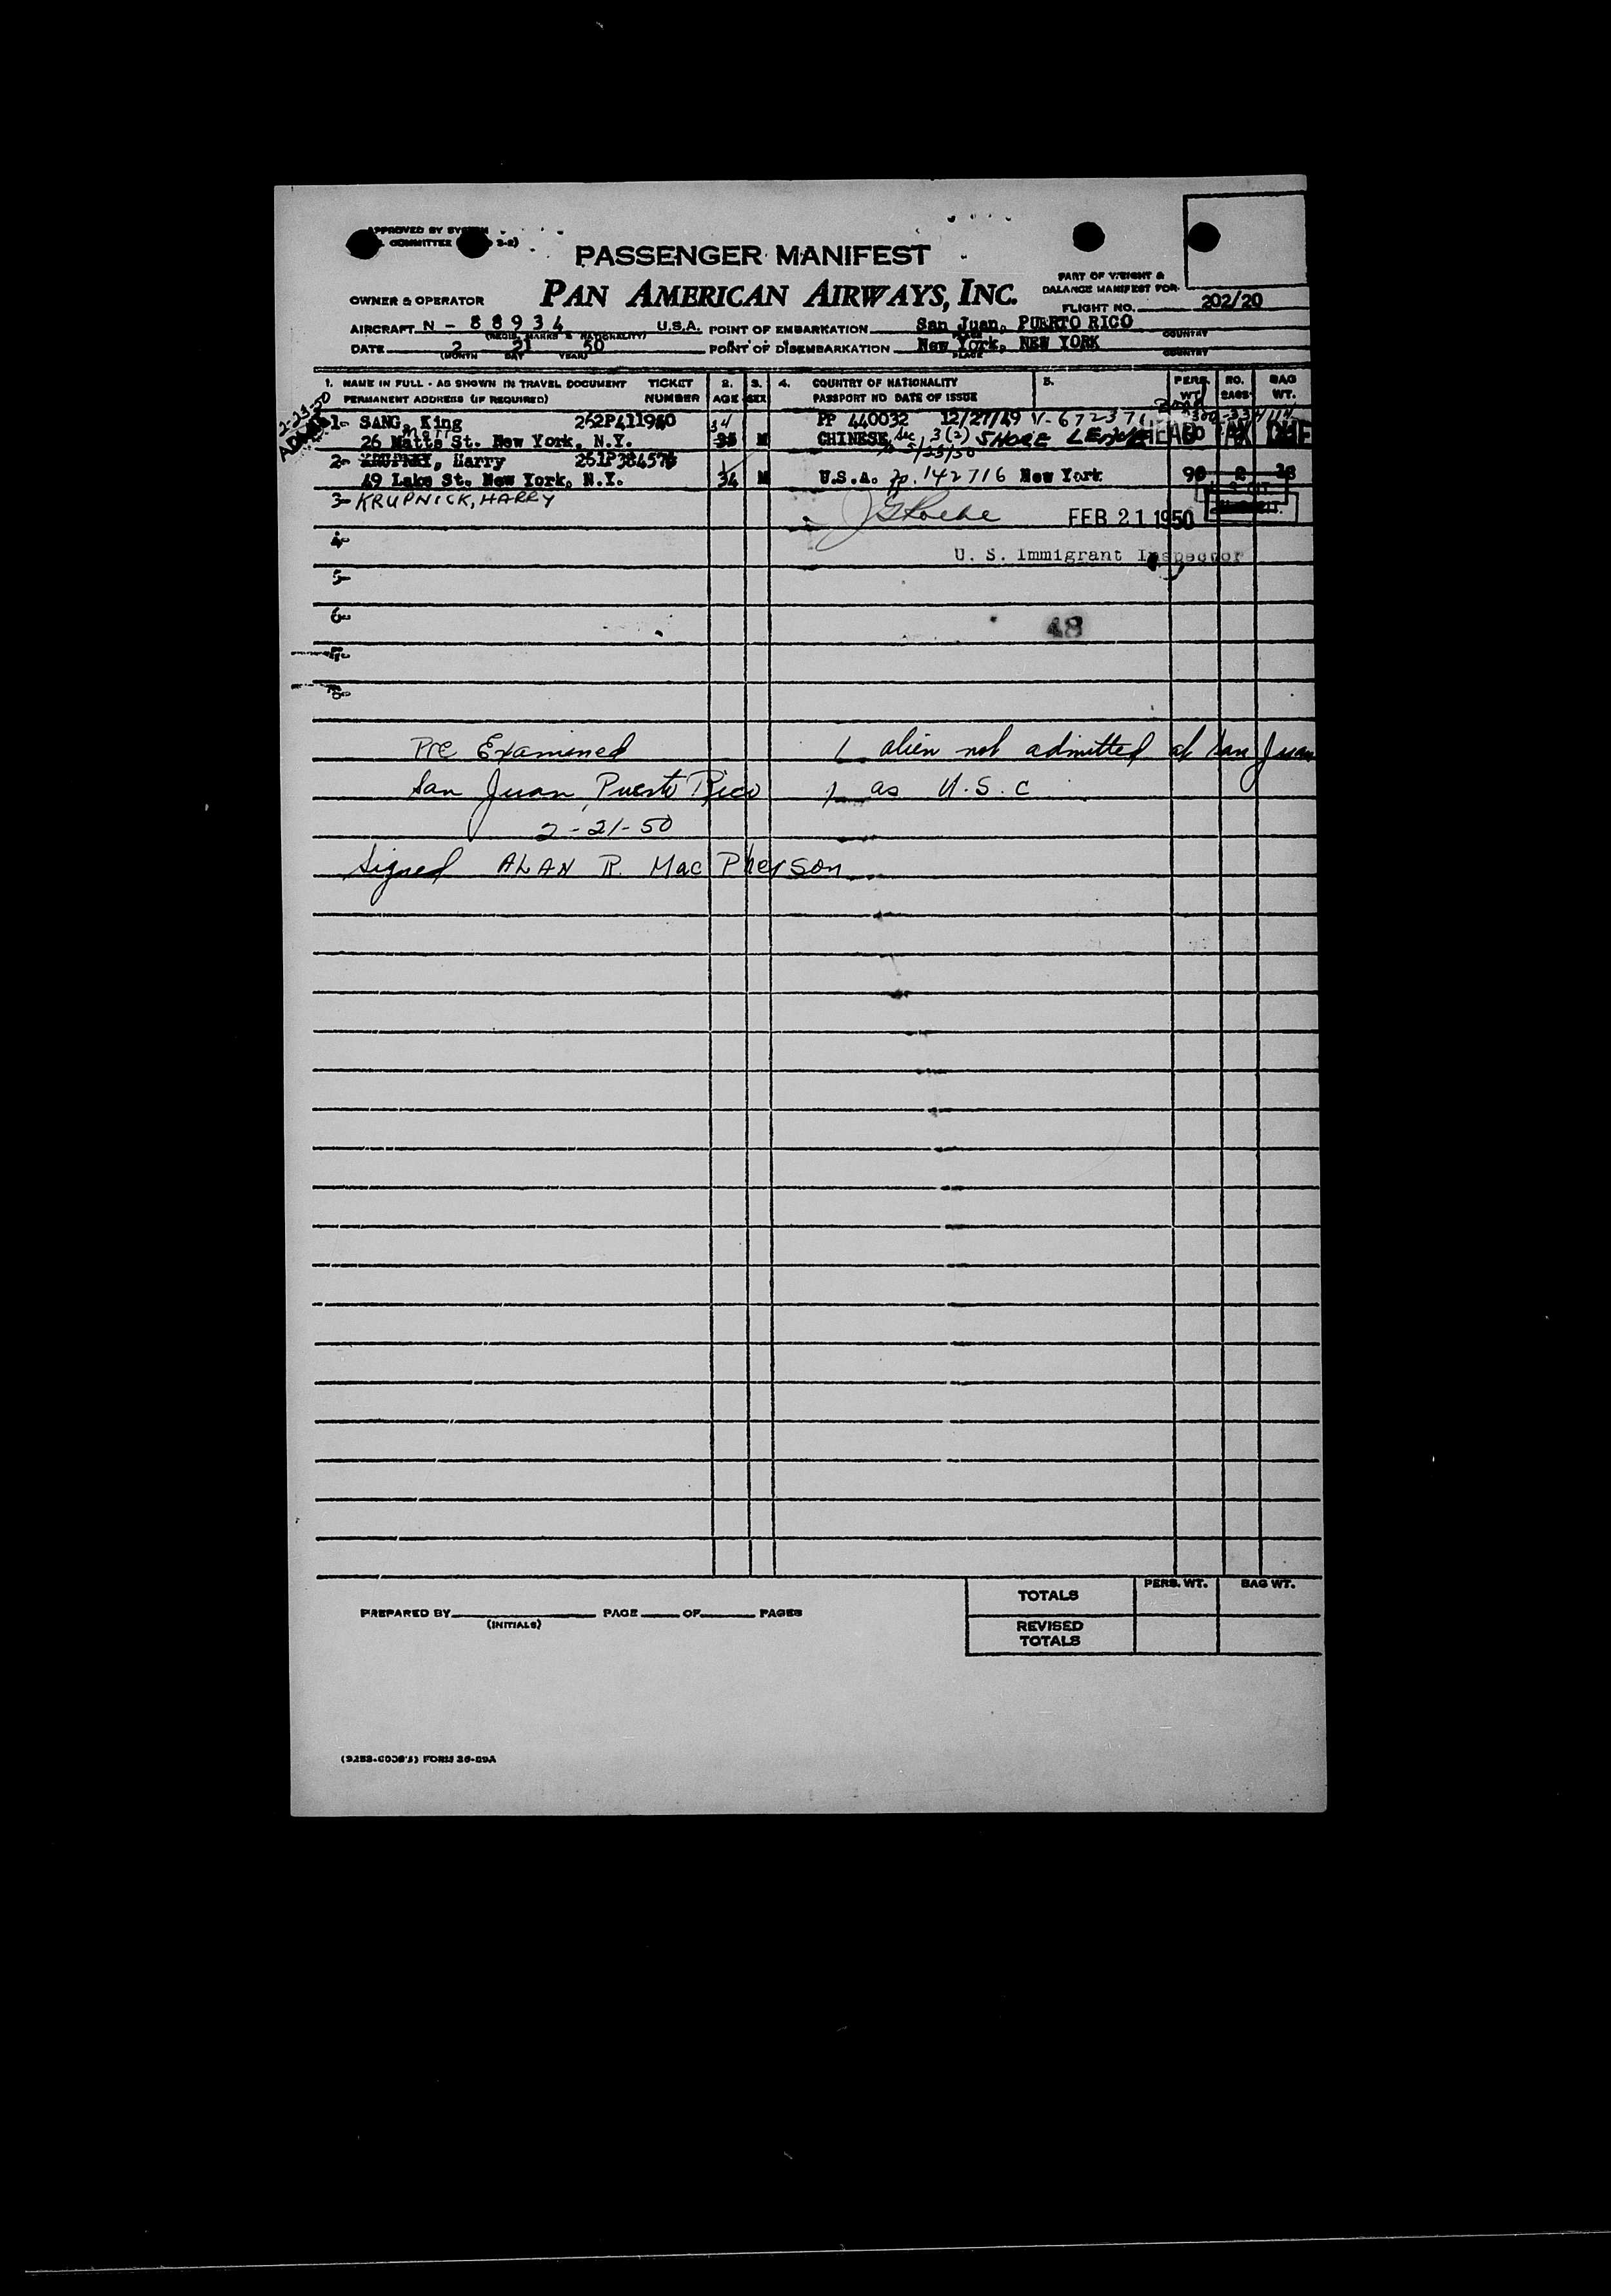 APPROVED BY
COMMITTEE
PASSENGER MANIFEST
PART OF WEIGHT &
BALANCE MANIFEST FOR
OWNER & OPERATOR PAN AMERICAN AIRWAYS, INC. FLIGHT NO. 202/20
AIRCRAFT N - 88934 U.S.A. POINT OF EMBARKATION San Juan, PUERTO RICO
(REGIS. MARKS & NATIONALITY) PLACE COUNTRY
DATE 2 21 50 POINT OF DISEMBARKATION New York, NEW YORK
(MONTH DAY YEAR) PLACE COUNTRY
1. NAME IN FULL - AS SHOWN IN TRAVEL DOCUMENT TICKET 2. 3. 4. COUNTRY OF NATIONALITY 5. PERS. NO. BAG
PERMANENT ADDRESS (IF REQUIRED) NUMBER AGE SEX PASSPORT NO DATE OF ISSUE WT. BAGS WT.
2-23-50
1- SANG, King 262P411940 34 PP 440032 12/27/49 V-672371
26 Watts St. New York, N.Y. M CHINESE Sec 3(2) SHORE LEAVE HEAD TAX DUE
2- Harry 34 M
49 Lake St. New York, N.Y. U.S.A. 142716 New York 90 2
3- KRUPNICK, HARRY
FEB 21 1950
4-
U. S. Immigrant Inspector
5-
6-
48
7-
8-
Pre Examined 1 alien not admitted at San Juan
San Juan, Puerto Rico 1 as U.S.C
2-21-50
Signed ALAN R. MacPherson
TOTALS PERS. WT. BAG WT.
PREPARED BY PAGE OF PAGES
(INITIALS)
REVISED
TOTALS
FORM 36-09A